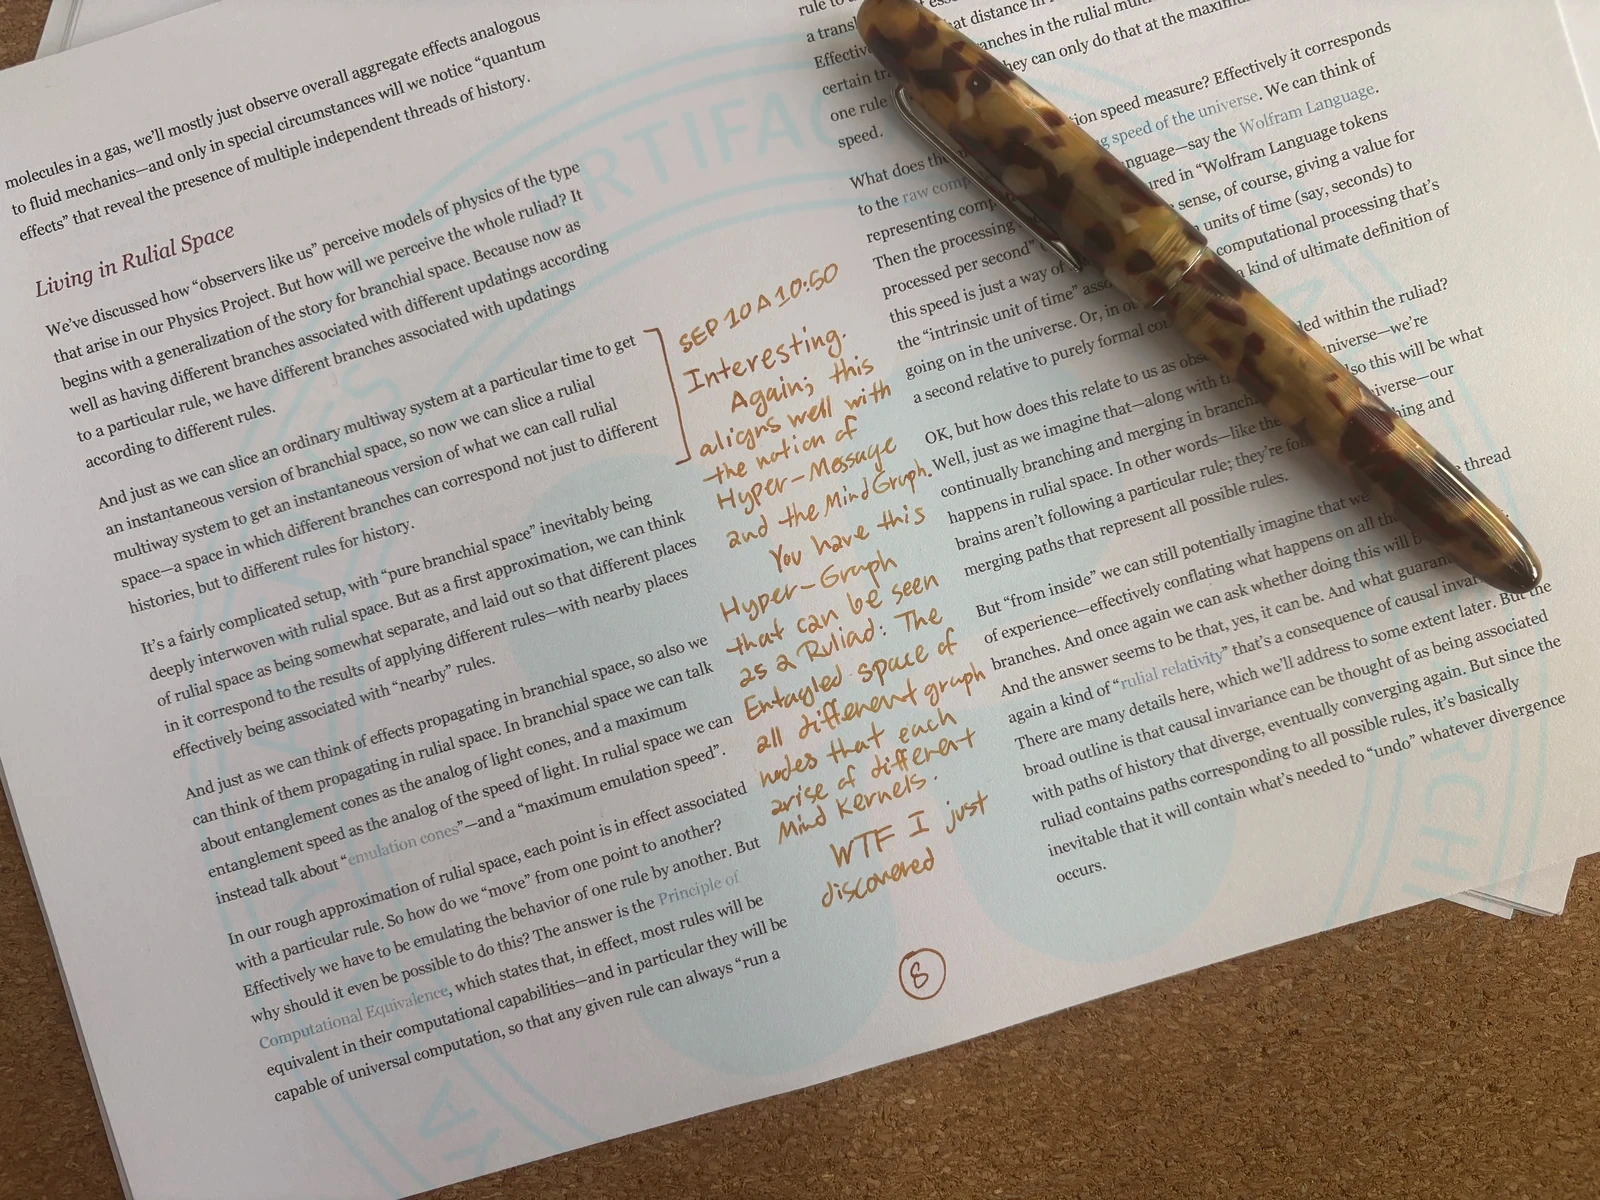 molecules in a gas, we'll mostly just observe overall aggregate effects analogous
to fluid mechanics—and only in special circumstances will we notice “quantum
effects” that reveal the presence of multiple independent threads of history.
Living in Rulial Space
We've discussed how “observers like us” perceive models of physics of the type
that arise in our Physics Project. But how will we perceive the whole ruliad? It
begins with a generalization of the story for branchial space. Because now as
well as having different branches associated with different updatings according
to a particular rule, we have different branches associated with updatings
according to different rules.
And just as we can slice an ordinary multiway system at a particular time to get
an instantaneous version of branchial space, so now we can slice a rulial
multiway system to get an instantaneous version of what we can call rulial
space—a space in which different branches can correspond not just to different
histories, but to different rules for history.
It's a fairly complicated setup, with “pure branchial space” inevitably being
deeply interwoven with rulial space. But as a first approximation, we can think
of rulial space as being somewhat separate, and laid out so that different places
in it correspond to the results of applying different rules—with nearby places
effectively being associated with “nearby” rules.
And just as we can think of effects propagating in branchial space, so also we
can think of them propagating in rulial space. In branchial space we can talk
about entanglement cones as the analog of light cones, and a maximum
entanglement speed as the analog of the speed of light. In rulial space we can
instead talk about “emulation cones”—and a “maximum emulation speed”.
In our rough approximation of rulial space, each point is in effect associated
with a particular rule. So how do we “move” from one point to another?
Effectively we have to be emulating the behavior of one rule by another. But
why should it even be possible to do this? The answer is the Principle of
Computational Equivalence, which states that, in effect, most rules will be
equivalent in their computational capabilities—and in particular they will be
capable of universal computation, so that any given rule can always “run a
SEP 10 A 10:50
Interesting.
Again; this
aligns well with
the notion of
Hyper-Message
and the MindGraph.
You have this
Hyper-Graph
that can be seen
as a Ruliad: The
Entagled space of
all different graph
nodes that each
arise of different
Mind Kernels.
WTF I just
discovered
8
rule to
a trans at distance in
Effective branches in the rulial
certain they can only do that at the
one rule
speed.
What does the tion speed measure? Effectively it corresponds
to the raw speed of the universe. We can think of
representing language—say the Wolfram Language.
Then the processing in “Wolfram Language tokens
processed per second” sense, of course, giving a value for
this speed is just a way of units of time (say, seconds) to
the “intrinsic unit of time” computational processing that's
going on in the universe. Or, in a kind of ultimate definition of
a second relative to purely formal
OK, but how does this relate to us as within the ruliad?
Well, just as we imagine that—along with universe—we're
continually branching and merging in so this will be what
happens in rulial space. In other words—like the universe—our
brains aren't following a particular rule; they're and
merging paths that represent all possible rules.
But “from inside” we can still potentially imagine that we thread
of experience—effectively conflating what happens on all
branches. And once again we can ask whether doing this will
And the answer seems to be that, yes, it can be. And what
again a kind of “rulial relativity” that's a consequence of causal
There are many details here, which we'll address to some extent later. But the
broad outline is that causal invariance can be thought of as being associated
with paths of history that diverge, eventually converging again. But since the
ruliad contains paths corresponding to all possible rules, it's basically
inevitable that it will contain what's needed to “undo” whatever divergence
occurs.